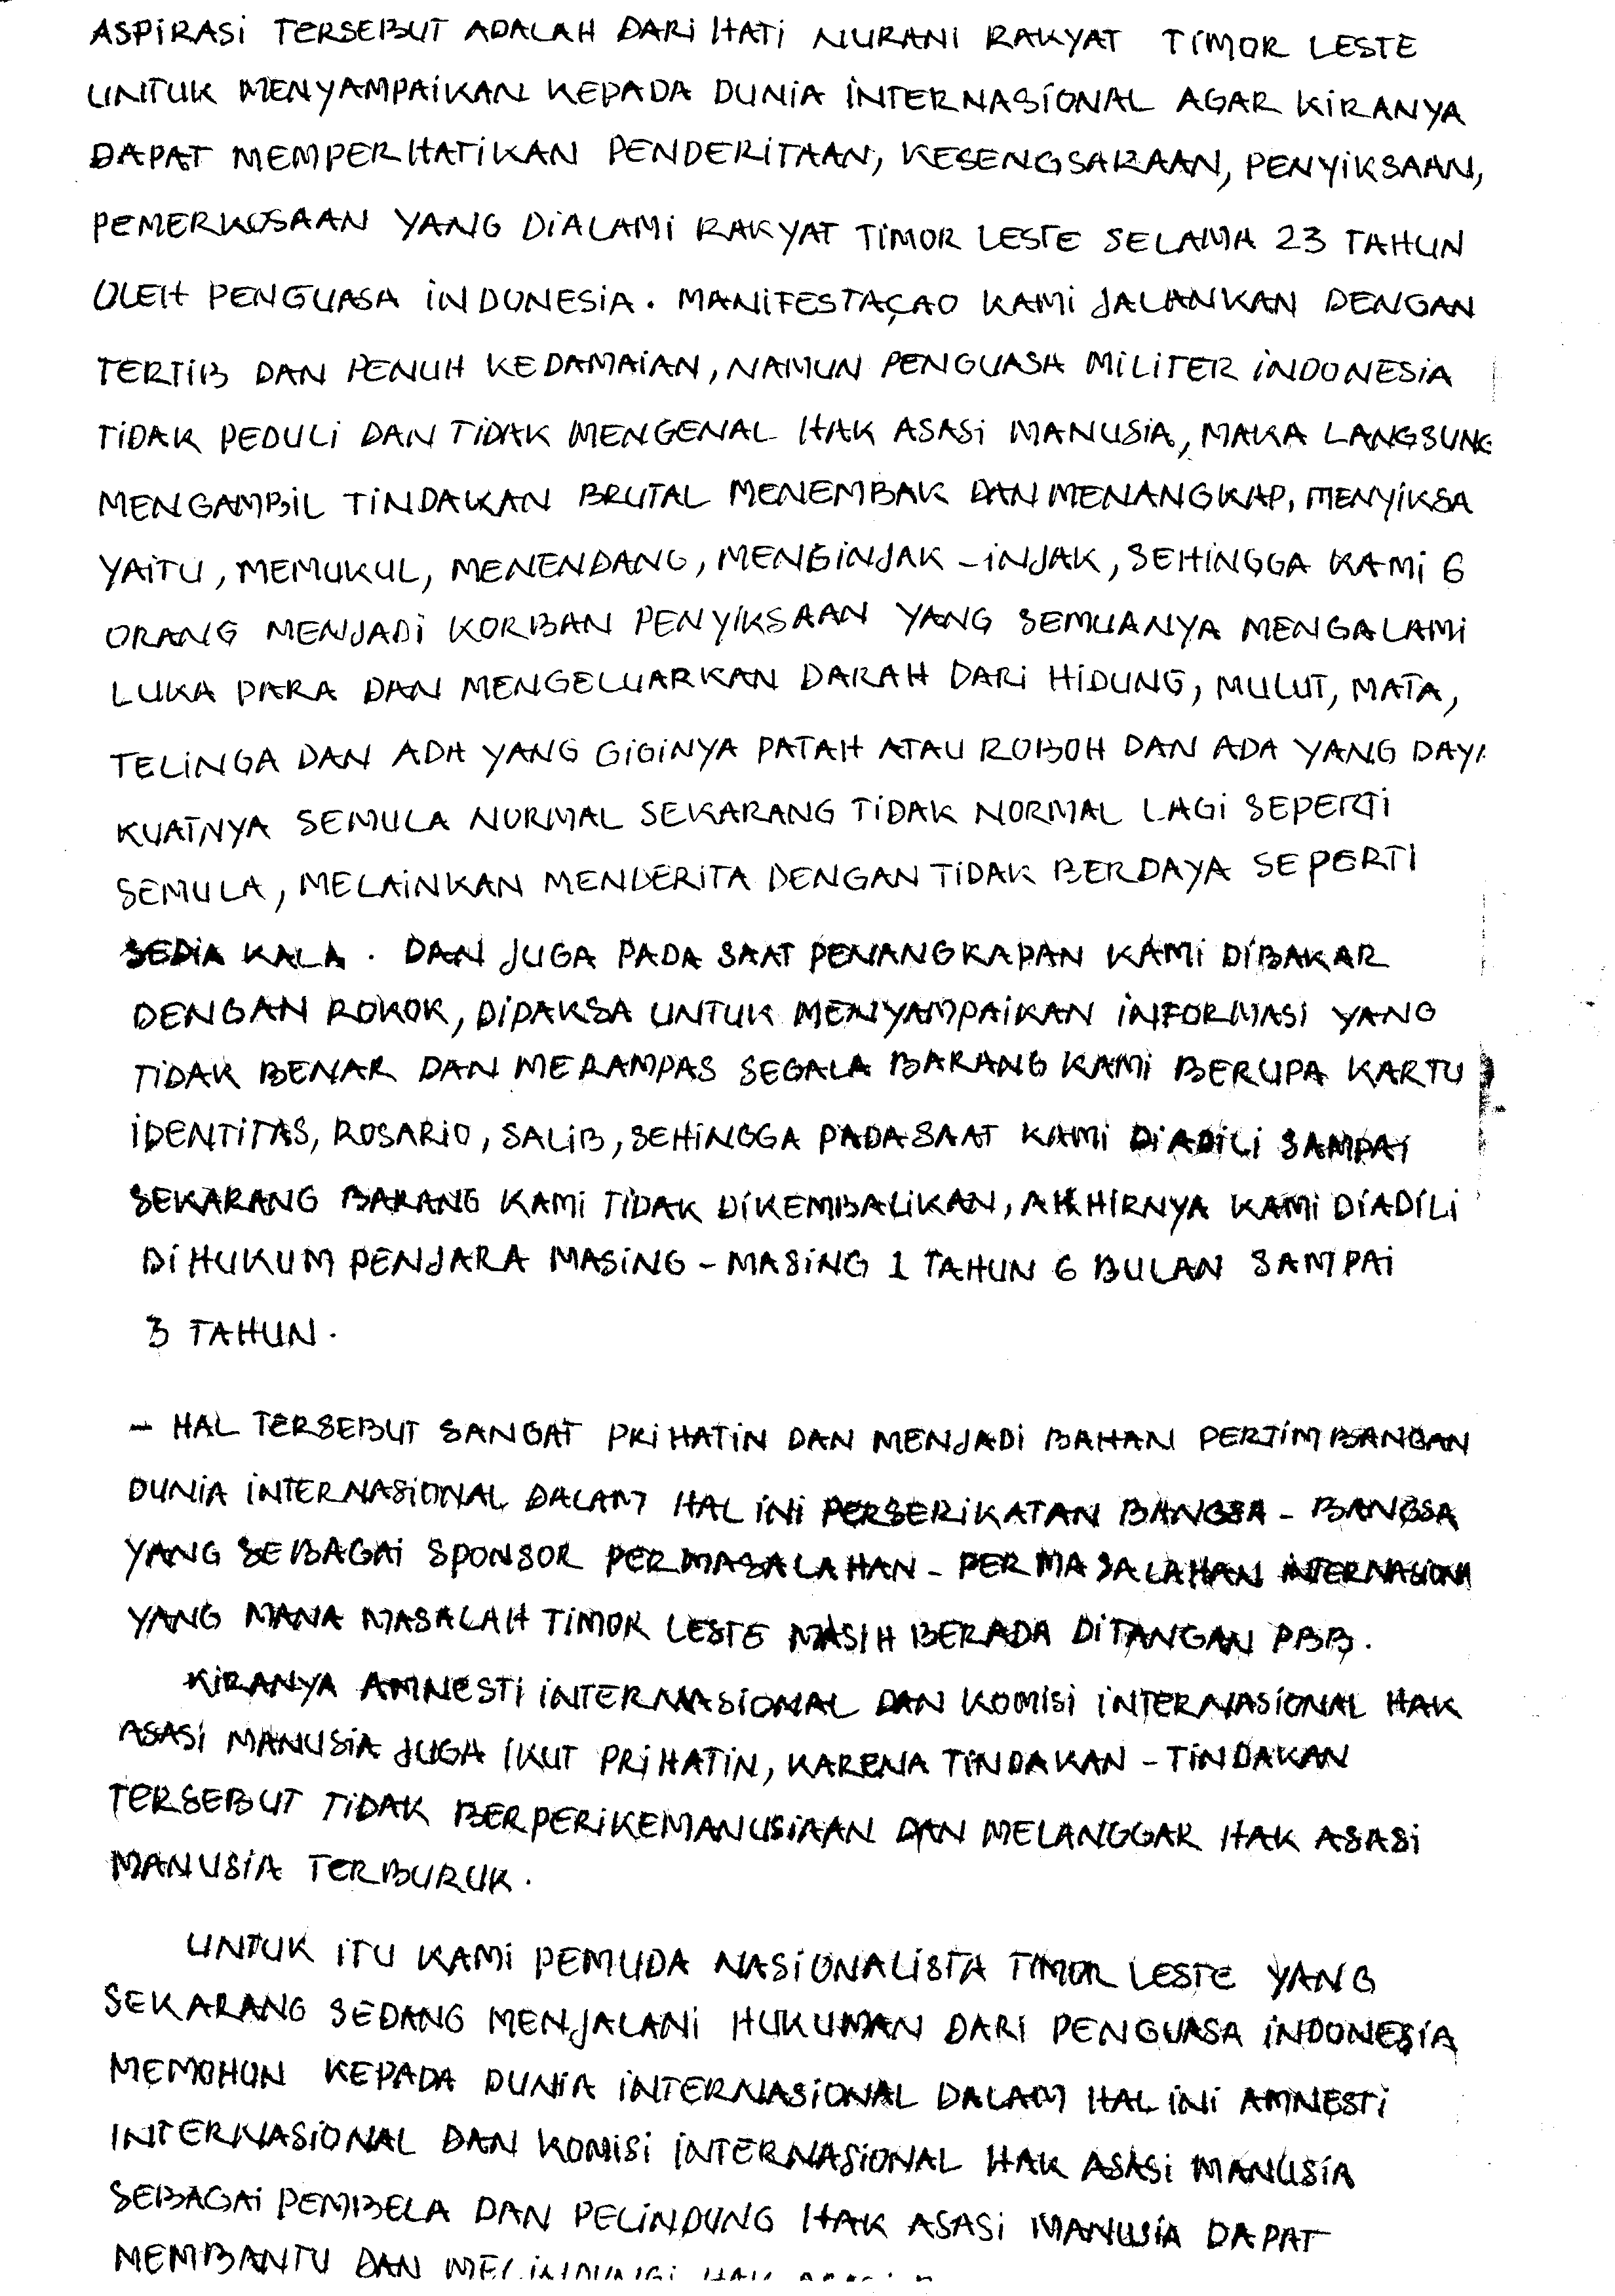 ASPIRASI TERSEBUT ADALAH DARI HATI NURANI RAKYAT TIMOR LESTE
UNTUK MENYAMPAIKAN KEPADA DUNIA INTERNASIONAL AGAR KIRANYA
DAPAT MEMPERHATIKAN PENDERITAAN, KESENGSARAAN, PENYIKSAAN,
PEMERKOSAAN YANG DIALAMI RAKYAT TIMOR LESTE SELAMA 23 TAHUN
OLEH PENGUASA INDONESIA. MANIFESTAÇAO KAMI JALANKAN DENGAN
TERTIB DAN PENUH KEDAMAIAN, NAMUN PENGUASA MILITER INDONESIA
TIDAK PEDULI DAN TIDAK MENGENAL HAK ASASI MANUSIA, MAKA LANGSUNG
MENGAMBIL TINDAKAN BRUTAL MENEMBAK DAN MENANGKAP, MENYIKSA
YAITU, MEMUKUL, MENENDANG, MENGINJAK-INJAK, SEHINGGA KAMI 6
ORANG MENJADI KORBAN PENYIKSAAN YANG SEMUANYA MENGALAMI
LUKA PARA DAN MENGELUARKAN DARAH DARI HIDUNG, MULUT, MATA,
TELINGA DAN ADA YANG GIGINYA PATAH ATAU ROBOH DAN ADA YANG DAYA
KUATNYA SEMULA NORMAL SEKARANG TIDAK NORMAL LAGI SEPERTI
SEMULA, MELAINKAN MENDERITA DENGAN TIDAK BERDAYA SEPERTI
SEDIA KALA. DAN JUGA PADA SAAT PENANGKAPAN KAMI DIBAKAR
DENGAN ROKOK, DIPAKSA UNTUK MENYAMPAIKAN INFORMASI YANG
TIDAK BENAR DAN MERAMPAS SEGALA BARANG KAMI BERUPA KARTU
IDENTITAS, ROSARIO, SALIB, SEHINGGA PADA SAAT KAMI DIADILI SAMPAI
SEKARANG BARANG KAMI TIDAK DIKEMBALIKAN, AKHIRNYA KAMI DIADILI
DI HUKUM PENJARA MASING-MASING 1 TAHUN 6 BULAN SAMPAI
3 TAHUN.
- HAL TERSEBUT SANGAT PRIHATIN DAN MENJADI BAHAN PERTIMBANGAN
DUNIA INTERNASIONAL DALAM HAL INI PERSERIKATAN BANGSA-BANGSA
YANG SEBAGAI SPONSOR PERMASALAHAN-PERMASALAHAN INTERNASIONA
YANG MANA MASALAH TIMOR LESTE MASIH BERADA DITANGAN PBB.
KIRANYA AMNESTI INTERNASIONAL DAN KOMISI INTERNASIONAL HAK
ASASI MANUSIA JUGA IKUT PRIHATIN, KARENA TINDAKAN-TINDAKAN
TERSEBUT TIDAK BERPERIKEMANUSIAAN DAN MELANGGAR HAK ASASI
MANUSIA TERBURUK.
UNTUK ITU KAMI PEMUDA NASIONALISTA TIMOR LESTE YANG
SEKARANG SEDANG MENJALANI HUKUMAN DARI PENGUASA INDONESIA
MEMOHON KEPADA DUNIA INTERNASIONAL DALAM HAL INI AMNESTI
INTERNASIONAL DAN KOMISI INTERNASIONAL HAK ASASI MANUSIA
SEBAGAI PEMBELA DAN PELINDUNG HAK ASASI MANUSIA DAPAT
MEMBANTU DAN MELINDUNGI HAK